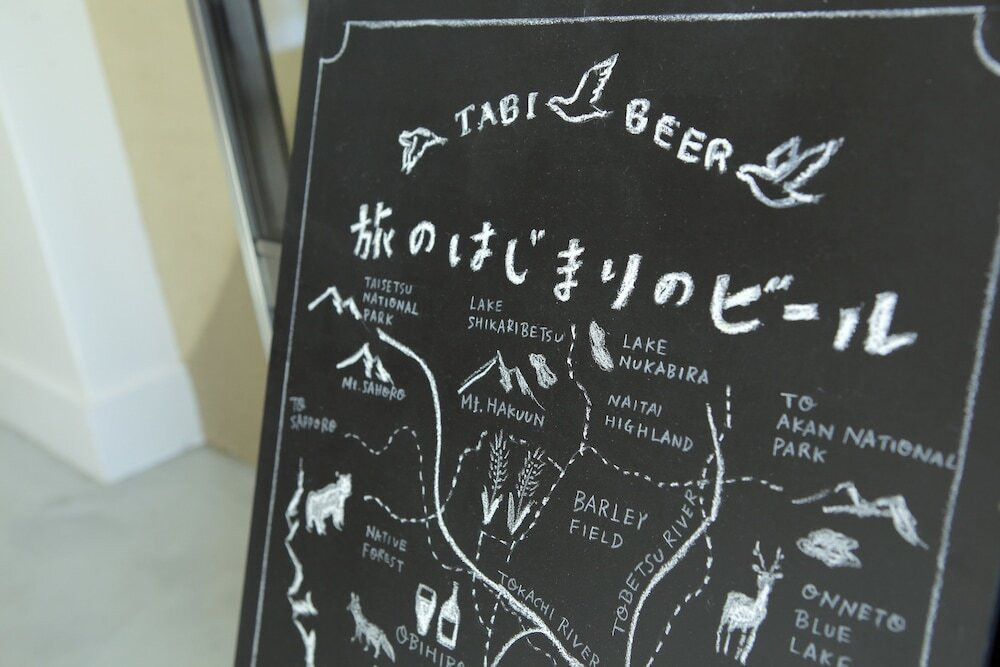 TABI BEER
旅のはじまりのビール
TAISETSU
NATIONAL
PARK
LAKE
SHIKARIBETSU
LAKE
NUKABIRA
Mt. SAHORO
Mt. HAKUUN
NAITAI
HIGHLAND
TO
AKAN NATIONAL
PARK
TO
SAPPORO
BARLEY
FIELD
NATIVE
FOREST
TOKACHI RIVER
TOBETSU RIVER
ONNETO
BLUE
LAKE
OBIHIRO